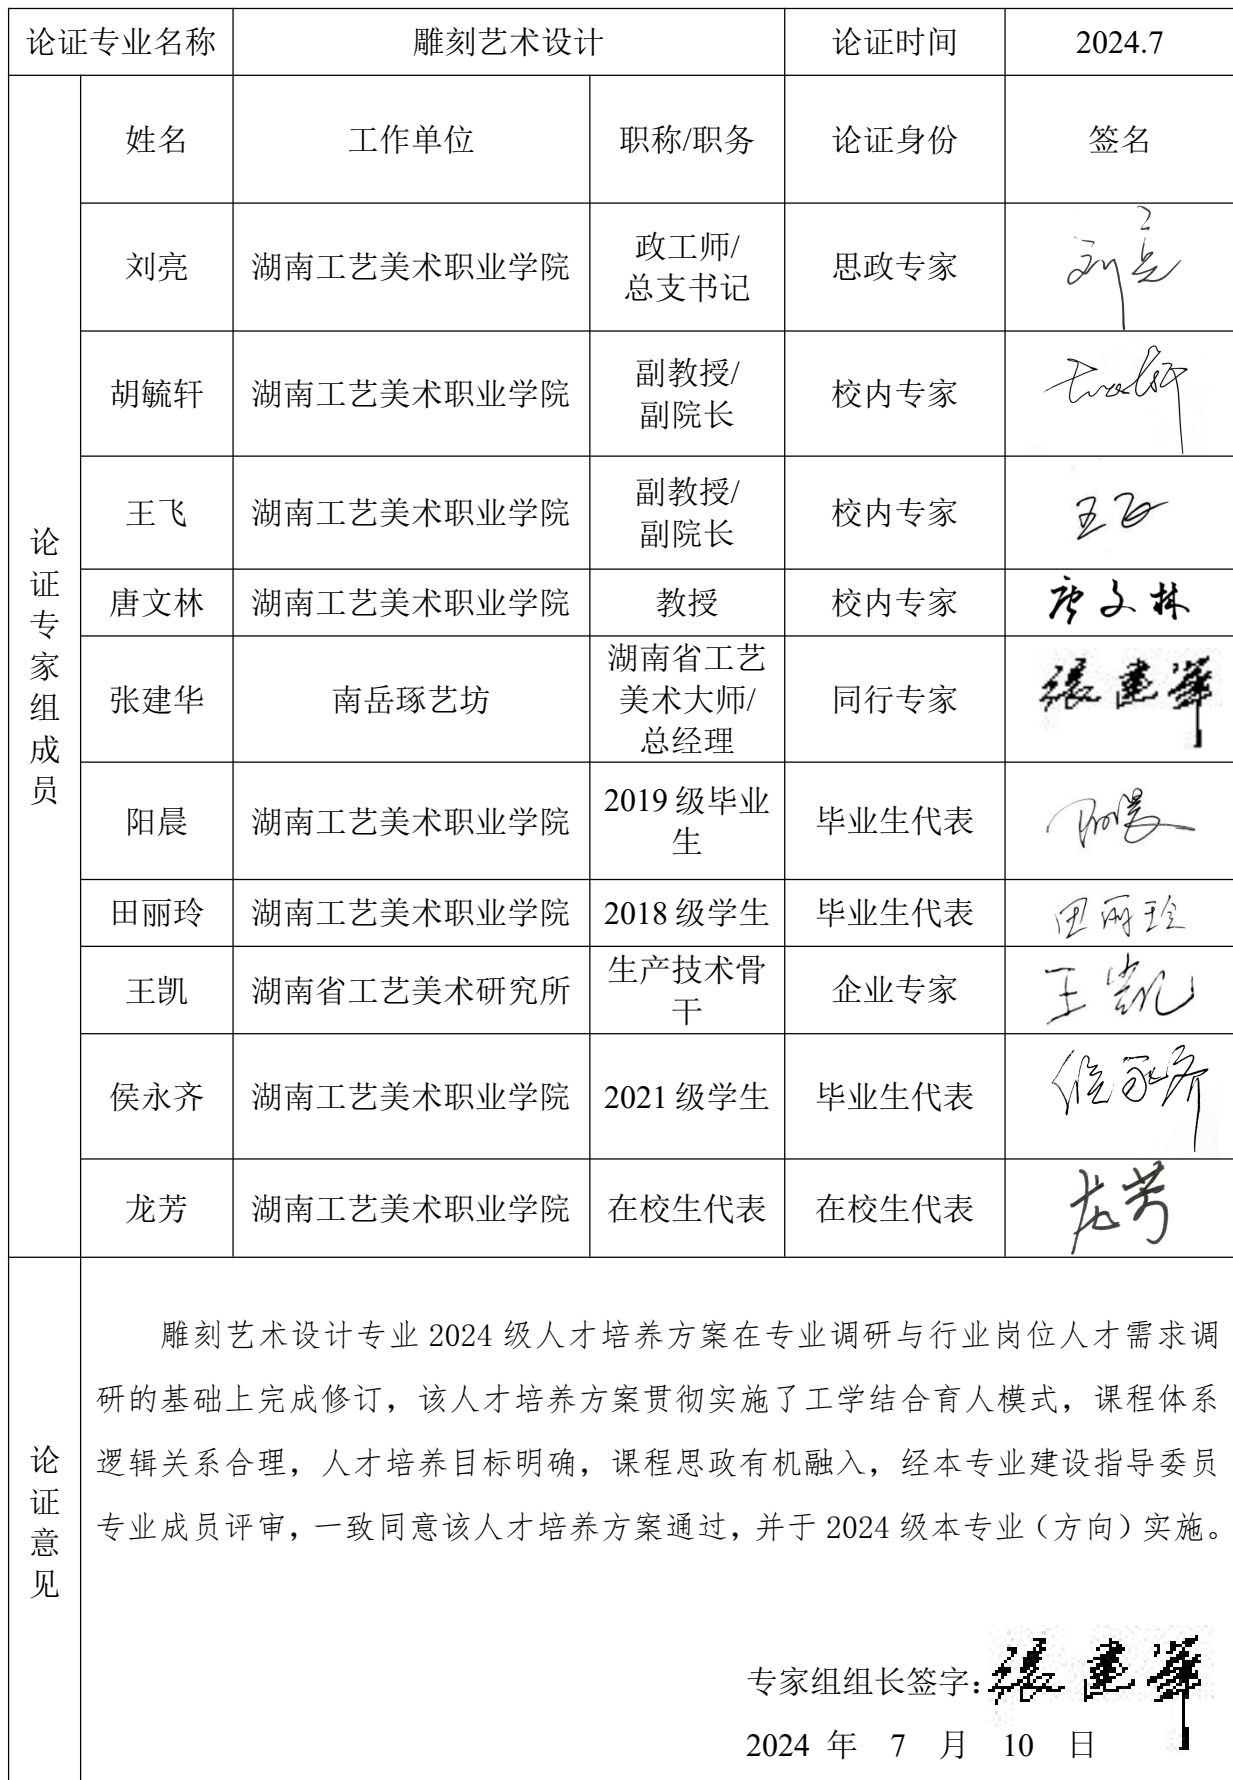 论证专业名称 雕刻艺术设计 论证时间 2024.7
论证专家组成员
姓名 工作单位 职称/职务 论证身份 签名
刘亮 湖南工艺美术职业学院 政工师/ 思政专家 刘亮
总支书记
胡毓轩 湖南工艺美术职业学院 副教授/ 校内专家
副院长
王飞 湖南工艺美术职业学院 副教授/ 校内专家 王飞
副院长
唐文林 湖南工艺美术职业学院 教授 校内专家 唐文林
张建华 南岳琢艺坊 湖南省工艺 同行专家 張建華
美术大师/
总经理
阳晨 湖南工艺美术职业学院 2019级毕业 毕业生代表 阳晨
生
田丽玲 湖南工艺美术职业学院 2018级学生 毕业生代表 田丽玲
王凯 湖南省工艺美术研究所 生产技术骨 企业专家 王凯
干
侯永齐 湖南工艺美术职业学院 2021级学生 毕业生代表 侯永齐
龙芳 湖南工艺美术职业学院 在校生代表 在校生代表 龙芳
论证意见
雕刻艺术设计专业 2024 级人才培养方案在专业调研与行业岗位人才需求调
研的基础上完成修订，该人才培养方案贯彻实施了工学结合育人模式，课程体系
逻辑关系合理，人才培养目标明确，课程思政有机融入，经本专业建设指导委员
专业成员评审，一致同意该人才培养方案通过，并于 2024 级本专业（方向）实施。
专家组组长签字：張建華
2024 年 7 月 10 日